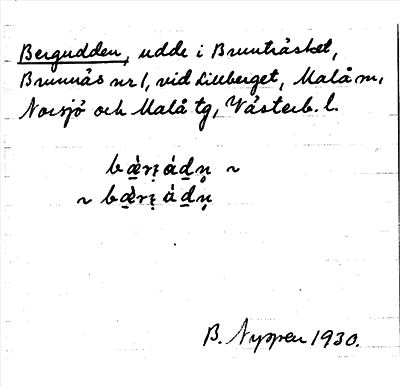 Bergudden, udde i Brunträsket,
Brunnäs nr 1, vid Lillberget, Malå sn,
Norsjö och Malå tg, Västerb. l.
bæ̀rı̨ádn̥ ~
~ bæ̀rı̨ àdn̥
B. Nyppen 1930.